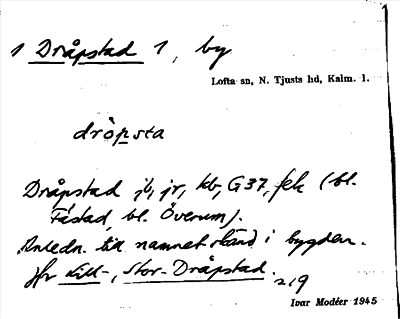 1 Dråpstad 1, by
Lofta sn, N. Tjusts hd, Kalm. l.
dròpsta
Dråpstad jb, jr, kb, G37, fek (bl.
Fåstad, bl. Överum).
Anledn. till namnet känd i bygden.
Jfr Lill-, Stor-Dråpstad.
Ivar Modéer 1945